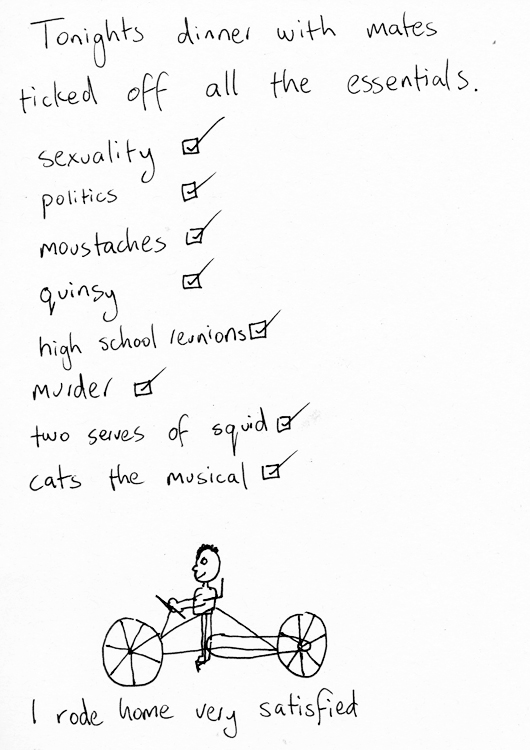 Tonights dinner with mates
ticked off all the essentials.
sexuality
politics
moustaches
quinsy
high school reunions
murder
two serves of squid
cats the musical
I rode home very satisfied